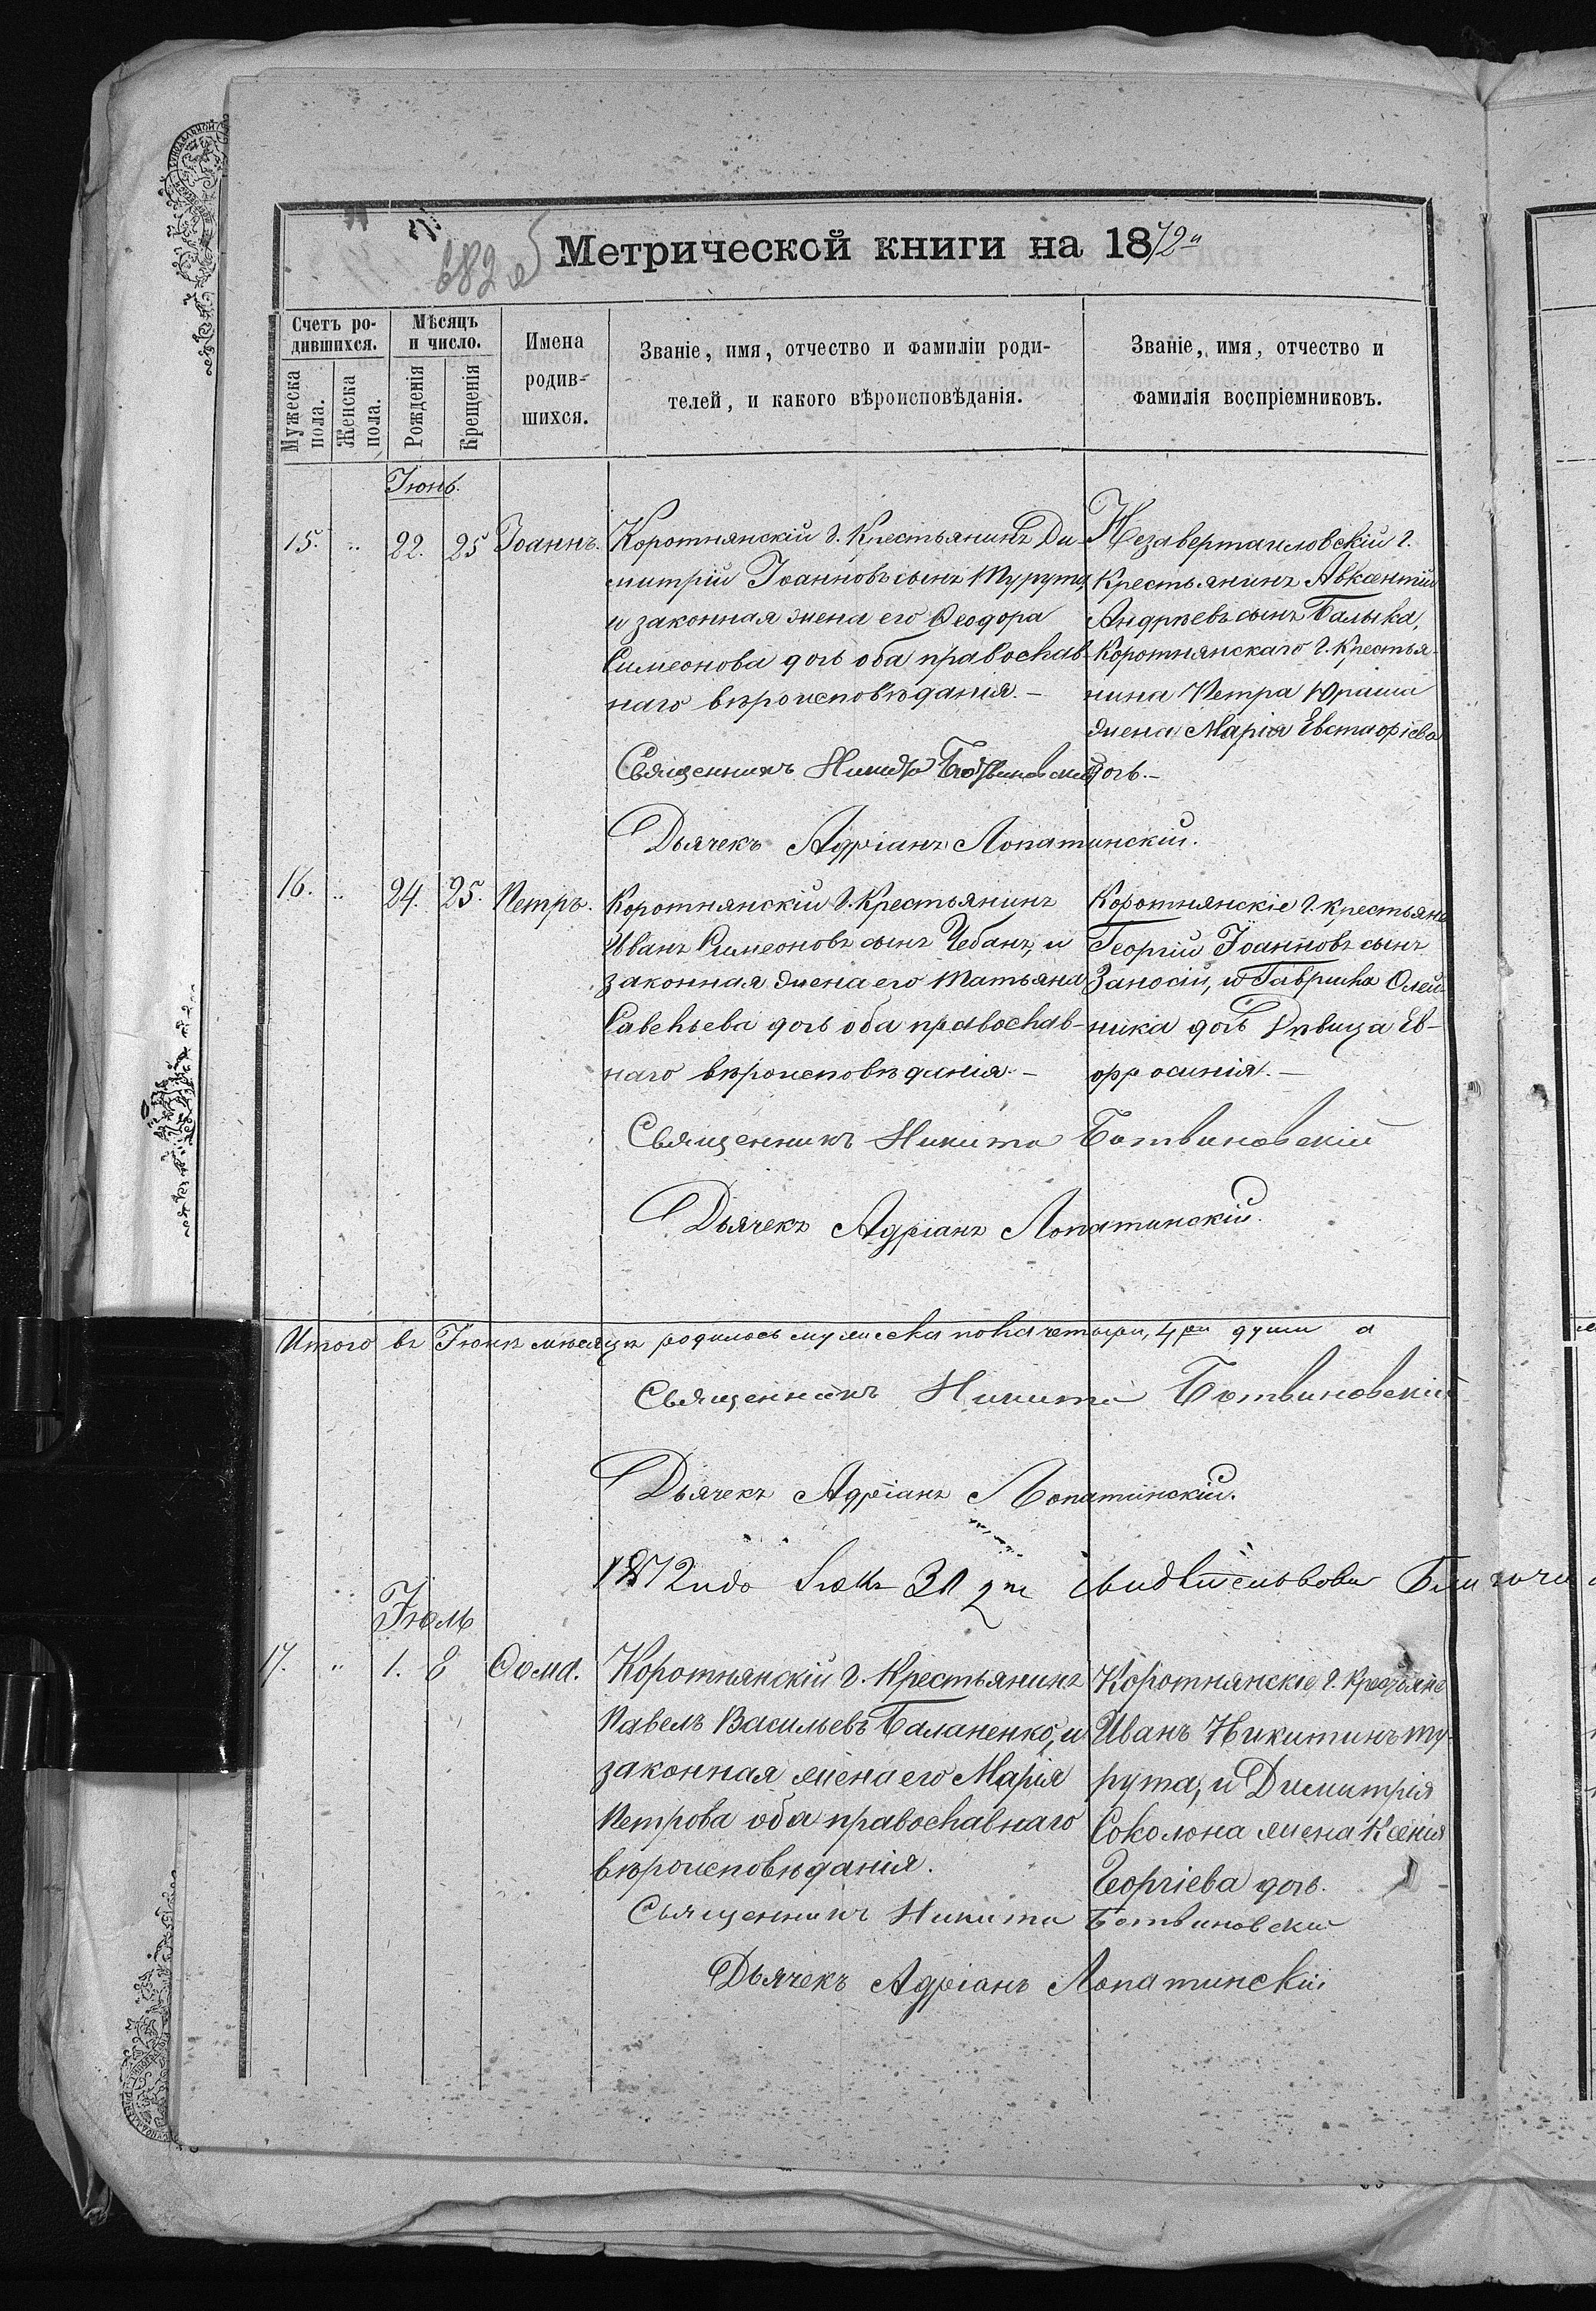 682
Метрической книги на 1872й
Счетъ ро-
дившихся.
Мѣсяцъ
и число.
Имена
родив-
шихся.
Званіе, имя, отчество и фамиліи роди-
телей, и какого вѣроисповѣданія.
Званіе, имя, отчество и
фамилія воспріемниковъ.
Мужеска
пола.
Женска
пола.
Рожденія
Крещенія
Іюнь.
15. „ 22. 25 Іоаннъ.
Коротнянскій г. Крестьянинъ Ди-
митрій Іоанновъ сынъ Турута,
и законная жена его Ѳеодора
Симеонова дочь оба православ-
наго вѣроисповѣданія. –
Незавертайловскій г.
Крестьянинъ Авксентій
Андреевъ сынъ Балыка,
Коротнянскаго г. Крестья-
нина Петра Юраша
жена Марія Евстафіева
дочь. –
Священникъ Никита Ботвиновскій
Дьячекъ Адріанъ Лопатинскій.
16. „ 24. 25. Петръ.
Коротнянскій г. Крестьянинъ
Иванъ Симеоновъ сынъ Чебанъ, и
законная жена его Татьяна
Савельева дочь оба православ-
наго вѣроисповѣданія. –
Коротнянскіе г. крестьяне
Георгій Іоанновъ сынъ
Заносій, и Гавриила Олей-
ника дочь дѣвица Ев-
фросинія. –
Священникъ Никита Ботвиновскій
Дьячекъ Адріанъ Лопатинскій.
Итого въ Іюнѣ мѣсяцѣ родилось мужеска пола четыри, 4ри души
Священникъ Никита Ботвиновскій
Дьячекъ Адріанъ Лопатинскій.
1872 31
Іюль
17. „ 1. 8 Ѳома.
Коротнянскій г. Крестьянинъ
Павелъ Васильевъ Баланенко, и
законная жена его Марія
Петрова оба православнаго
вѣроисповѣданія.
Коротнянскіе г. Крестьяне
Иванъ Никитинъ Ту-
рута, и Димитрія
Соколона жена Ксенія
Георгіева дочь.
Священникъ Никита Ботвиновскій
Дьячекъ Адріанъ Лопатинскій